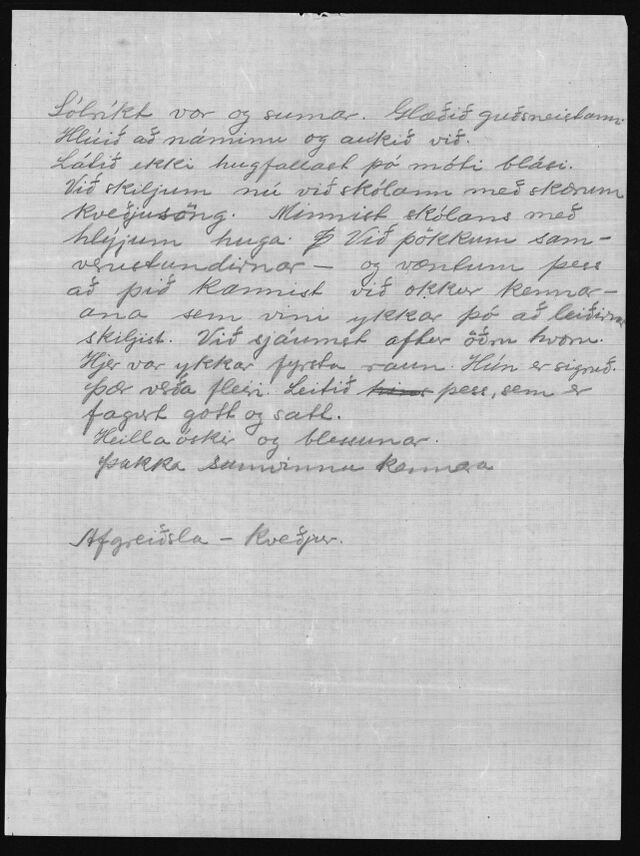 Sólríkt vor og sumar. Glæðið guðsneistann.
Hlúið að náminu og aukið við.
Látið ekki hugfallast þó móti blási.
Við skiljum nú við skólann með skærum
kveðjusöng. Minnist skólans með
hlýjum huga. Við þökkum sam-
verustundirnar — og væntum þess
að þið kannist við okkur kennar-
ana sem vini ykkar þó að leiðirnar
skiljist. Við sjáumst aftur öðru hvoru.
Hjer var ykkar fyrsta raun. Hún er sigruð.
Þær verða fleiri. Leitið þess, sem er
fagurt gott og satt.
Heillaóskir og blessunar.
Þakka samvinnu kennara
Afgreiðsla — Kveðjur.